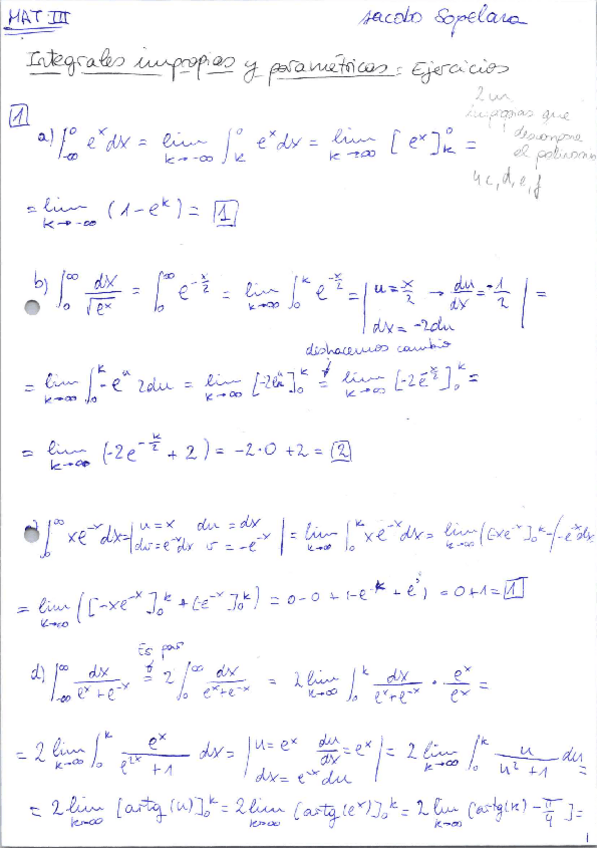 MAT III Jacobo Sopelana
Integrales impropias y paramétricas: Ejercicios
2 un
impropias que
descompone
el polinomio
y c, d, e, f
1
a) ∫_{-∞}^0 e^x dx = lim_{k→-∞} ∫_k^0 e^x dx = lim_{k→∞} [e^x]_k^0 =
= lim_{k→-∞} (1 - e^k) = 1
b) ∫_0^∞ dx/√(e^x) = ∫_0^∞ e^{-x/2} = lim_{k→∞} ∫_0^k e^{-x/2} = | u = x/2 → du/dx = -1/2 | =
dx = -2du
deshacemos cambio
= lim_{k→∞} ∫_0^k -e^u 2du = lim_{k→∞} [-2e^u]_0^k = lim_{k→∞} [-2e^{-x/2}]_0^k =
= lim_{k→∞} (-2e^{-k/2} + 2) = -2·0 + 2 = 2
∫_0^∞ xe^{-x}dx = | u = x du = dx
dv = e^{-x}dx v = -e^{-x} | = lim_{k→∞} ∫_0^k xe^{-x}dx = lim_{k→∞} ([-xe^{-x}]_0^k - ∫-e^{-x}dx
= lim_{k→∞} ([-xe^{-x}]_0^k + [-e^{-x}]_0^k) = 0 - 0 + (-e^{-k} + e^0) = 0 + 1 = 1
Es par
d) ∫_{-∞}^∞ dx/(e^x + e^{-x}) = 2∫_0^∞ dx/(e^x + e^{-x}) = 2 lim_{k→∞} ∫_0^k dx/(e^x + e^{-x}) · e^x/e^x =
= 2 lim_{k→∞} ∫_0^k e^x/(e^{2x} + 1) dx = | u = e^x du/dx = e^x | = 2 lim_{k→∞} ∫_0^k u/(u^2 + 1) du =
dx = e^{-x} du
= 2 lim_{k→∞} [artg(u)]_0^k = 2 lim_{k→∞} [artg(e^x)]_0^k = 2 lim_{k→∞} (artg(k) - π/4] =
1